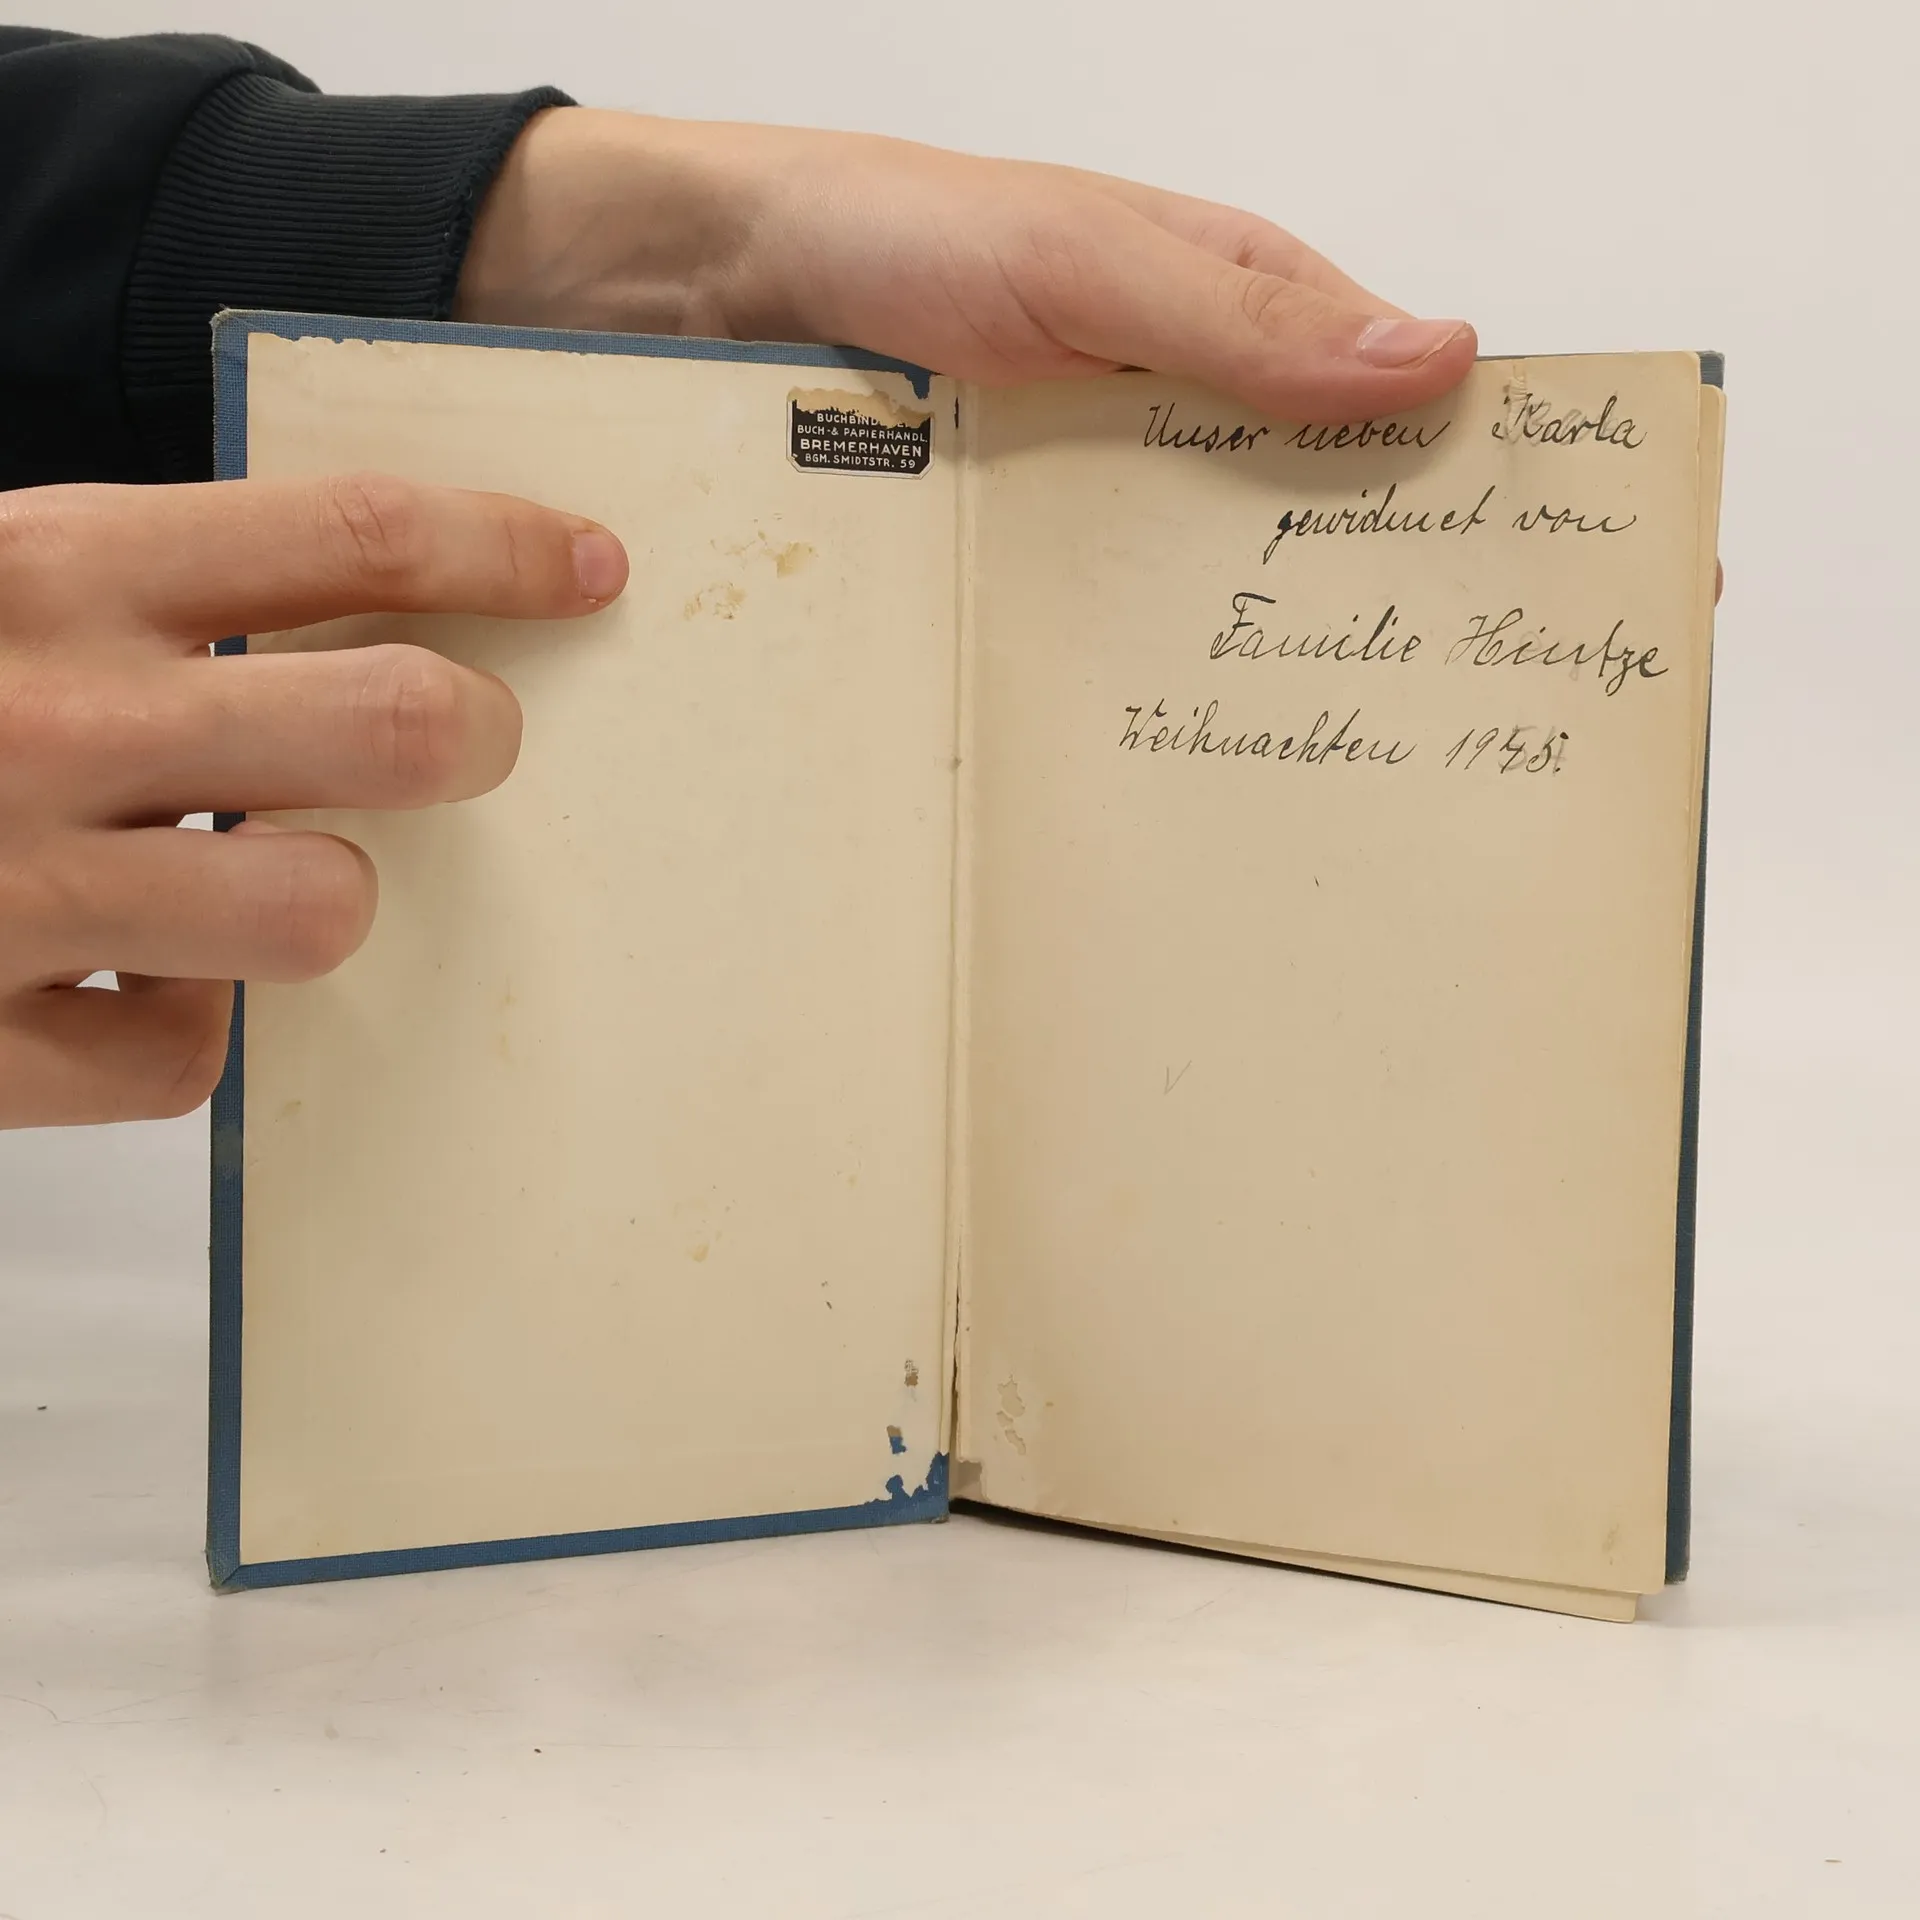 BUCHBIND
BUCH- & PAPIERHANDL.
BREMERHAVEN
BGM. SMIDTSTR. 59
Unser lieben Karla
gewidmet von
Familie Hintze
Weihnachten 1945.